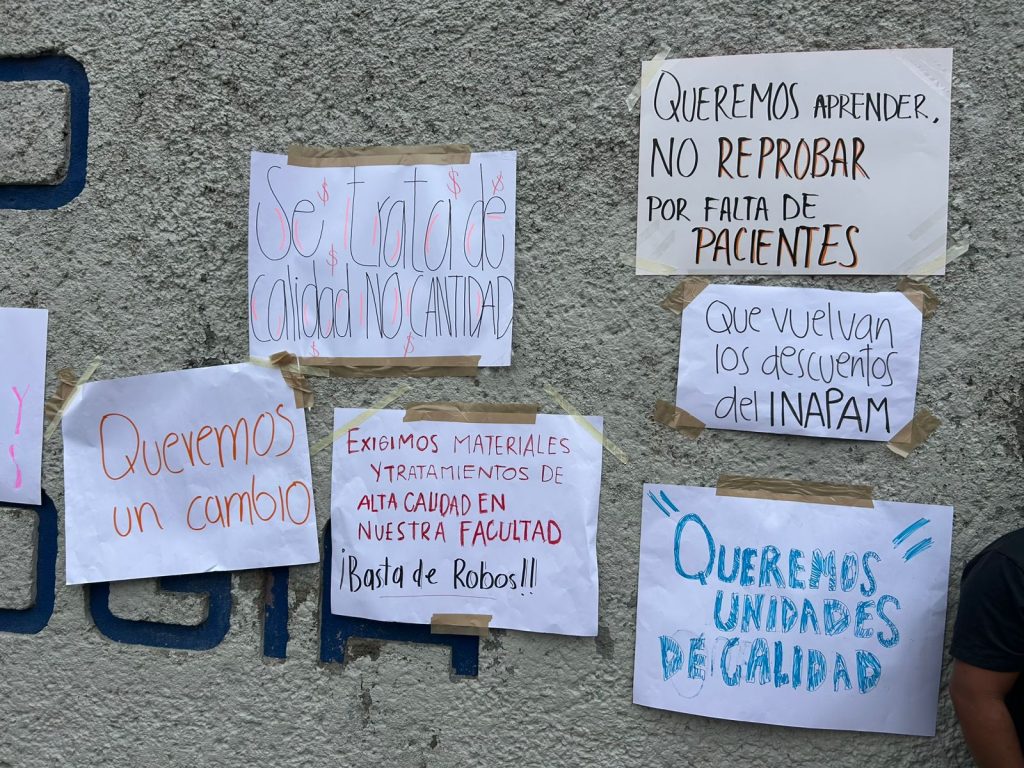 QUEREMOS APRENDER,
NO REPROBAR
POR FALTA DE
PACIENTES
Se trata de
calidad NO CANTIDAD
Que vuelvan
los descuentos
del INAPAM
Queremos
un cambio
EXIGIMOS MATERIALES
Y TRATAMIENTOS DE
ALTA CALIDAD EN
NUESTRA FACULTAD
¡Basta de Robos!!
QUEREMOS
UNIDADES
DE CALIDAD
Y